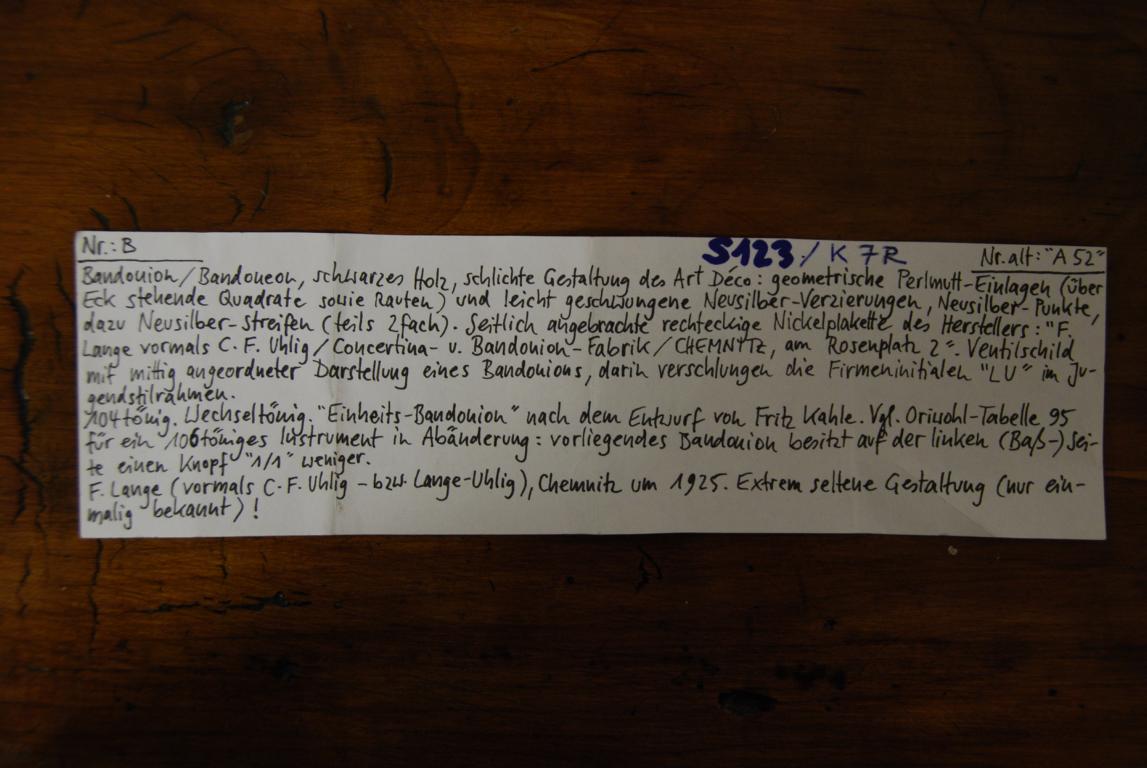 Nr.: B
S123 / K 7R
Nr. alt: "A 52"
Bandonion/Bandoneon, schwarzes Holz, schlichte Gestaltung des Art Déco: geometrische Perlmutt-Einlagen (über
Eck stehende Quadrate sowie Rauten) und leicht geschwungene Neusilber-Verzierungen, Neusilber-Punkte,
dazu Neusilber-Streifen (teils 2fach). Seitlich angebrachte rechteckige Nickelplakette des Herstellers: "F.
Lange vormals C. F. Uhlig / Concertina- u. Bandonion-Fabrik / CHEMNITZ, am Rosenplatz 2". Ventilschild
mit mittig angeordneter Darstellung eines Bandonions, darin verschlungen die Firmeninitialen "LU" im Ju-
gendstilrahmen.
104tönig. Wechseltönig. "Einheits-Bandonion" nach dem Entwurf von Fritz Kahle. Vgl. Oriwohl-Tabelle 95
für ein 106töniges Instrument in Abänderung: vorliegendes Bandonion besitzt auf der linken (Baß-) Sei-
te einen Knopf "1/1" weniger.
F. Lange (vormals C. F. Uhlig - bzw. Lange-Uhlig), Chemnitz um 1925. Extrem seltene Gestaltung (nur ein-
malig bekannt)!